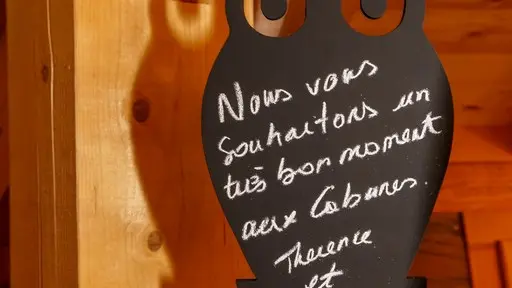 Nous vous
souhaitons un
très bon moment
aux Cabanes.
Therence
et